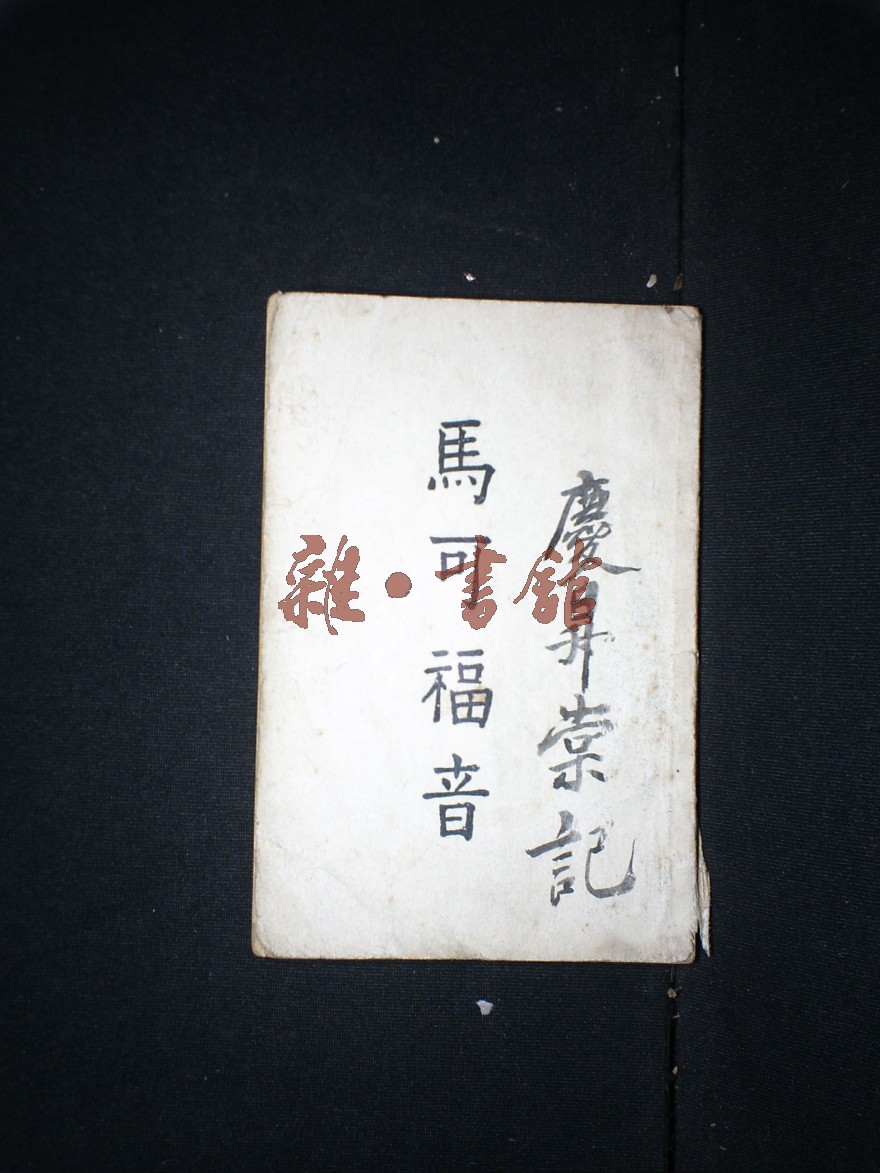 慶昇棠記
馬可福音
雜·書館